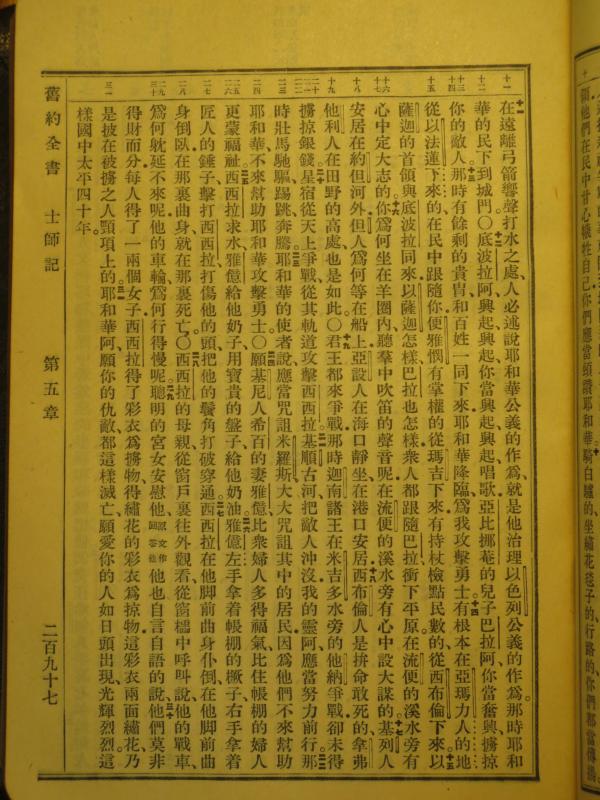 領他們在民中甘心犧牲自己你們應當頌讚耶和華騎白驢的坐繡花毯子的行路的你們都當傳揚
十一在遠離弓箭響聲打水之處人必述說耶和華公義的作爲就是他治理以色列公義的作爲那時耶和
華的民下到城門○十二底波拉阿興起興起你當興起興起唱歌亞比挪菴的兒子巴拉阿你當奮興擄掠
你的敵人十三那時有餘剩的貴冑和百姓一同下來耶和華降臨爲我攻擊勇士十四有根本在亞瑪力人的地
從以法蓮下來的在民中跟隨你便雅憫有掌權的從瑪吉下來有持杖檢點民數的從西布倫下來十五以
薩迦的首領與底波拉同來以薩迦怎樣巴拉也怎樣衆人都跟隨巴拉衝下平原在流便的溪水旁有
心中定大志的十六你爲何坐在羊圈內聽羣中吹笛的聲音呢在流便的溪水旁有心中設大謀的十七基列人
安居在約但河外但人爲何等在船上亞設人在海口靜坐在港口安居十八西布倫人是拚命敢死的拿弗
他利人在田野的高處也是如此○十九君王都來爭戰那時迦南諸王在米吉多水旁的他納爭戰卻未得
擄掠銀錢二十星宿從天上爭戰從其軌道攻擊西西拉二一基順古河把敵人沖沒我的靈阿應當努力前行二二那
時壯馬馳驅踢跳奔騰二三耶和華的使者說應當咒詛米羅斯大大咒詛其中的居民因爲他們不來幫助
耶和華不來幫助耶和華攻擊勇士○二四願基尼人希百的妻雅億比衆婦人多得福氣比住帳棚的婦人
更蒙福祉二五西西拉求水雅億給他奶子用寶貴的盤子給他奶油二六雅億左手拿着帳棚的橛子右手拿着
匠人的錘子擊打西西拉打傷他的頭把他的鬢角打破穿通二七西西拉在他脚前曲身仆倒在他脚前曲
身倒臥在那裏曲身就在那裏死亡○二八西西拉的母親從窗戶裏往外觀看從窗櫺中呼叫說他的戰車
爲何躭延不來呢他的車輪爲何行得慢呢二九聰明的宮女安慰他原文作回答他他也自言自語的說三十他們莫非
得財而分每人得了一兩個女子西西拉得了彩衣爲擄物得繡花的彩衣爲掠物這彩衣兩面繡花乃
是披在被擄之人頸項上的三一耶和華阿願你的仇敵都這樣滅亡願愛你的人如日頭出現光輝烈烈這
樣國中太平四十年
舊約全書 士師記 第五章 二百九十七